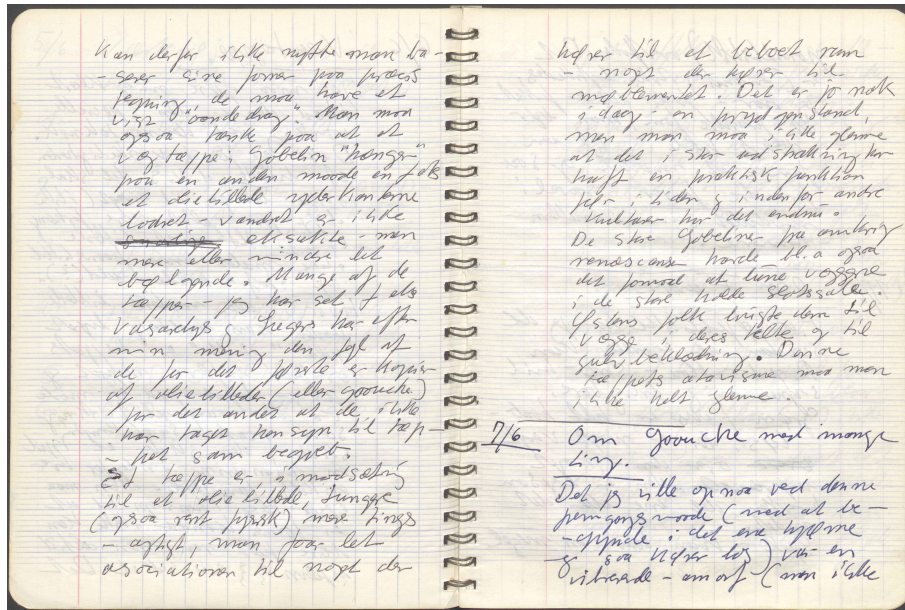 Kan derfor ikke nytte man ba-
-serer sine former paa præcis
tegning, de maa have et
vist "aandedrag". Man maa
ogsaa tænke paa at et
vægtæppe: Gobelin "hænger"
paa en anden maade en f.eks
et oliebillede yderkanterne
lodret - vandret er ikke
eksakte - men
mere eller mindre let
bølgende. Mange af de
tæpper - jeg har set f.eks
Vasarelys og Legers har efter
min mening den fejl at
de for det første er kopier
af oliebilleder (eller gouache)
for det andet at de ikke
har taget hensyn til tæp-
-pet som begreb.
Et tæppe er, i modsætning
til et oliebillede, tungere
(ogsaa rent fysisk) mere tings
-agtigt, man faar let
associationer til noget der
hører til et beboet rum
- noget der hører til
møblementet. Det er jo nok
i dag - en prydgenstand,
men man maa ikke glemme
at det i stor udstrækning har
haft en praktisk funktion
før i tiden og indenfor andre
kulturer har det endnu.
De store Gobeliner fra omkring
renæscansen havde bl.a ogsaa
det formaal at lune væggene
i de store kolde slotssale.
Østens folk brugte dem til
vægge i deres telte og til
gulvbeklædning. Denne
tæppets atavisme maa man
ikke helt glemme.
7/6 Om gouache med mange
ting.
Det jeg ville opnaa ved denne
fremgangsmaade (med at be-
-gynde i det ene hjørne
og saa kører løs) var en
vibrerede - amorf (men ikke